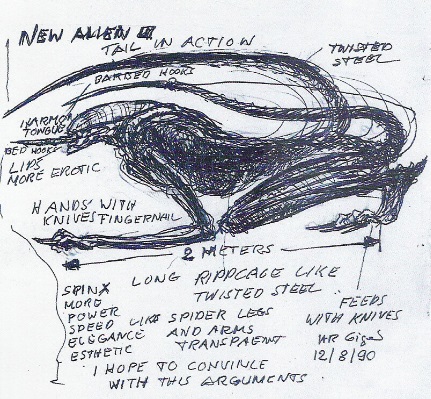 NEW ALIEN III
TAIL IN ACTION
TWISTED
STEEL
BARBED HOOKS
TONGUE
HOOKS
LIPS
MORE EROTIC
HANDS WITH
KNIVES FINGERNAIL
2 METERS
LONG RIPPCAGE LIKE
TWISTED STEEL
SPINX
MORE
POWER
SPEED
ELEGANCE
ESTHETIC
LIKE SPIDER LEGS
AND ARMS
TRANSPAENT
FEEDS
WITH KNIVES
HR Giger
12/8/90
I HOPE TO CONVINLE
WITH THIS ARGUMENTS